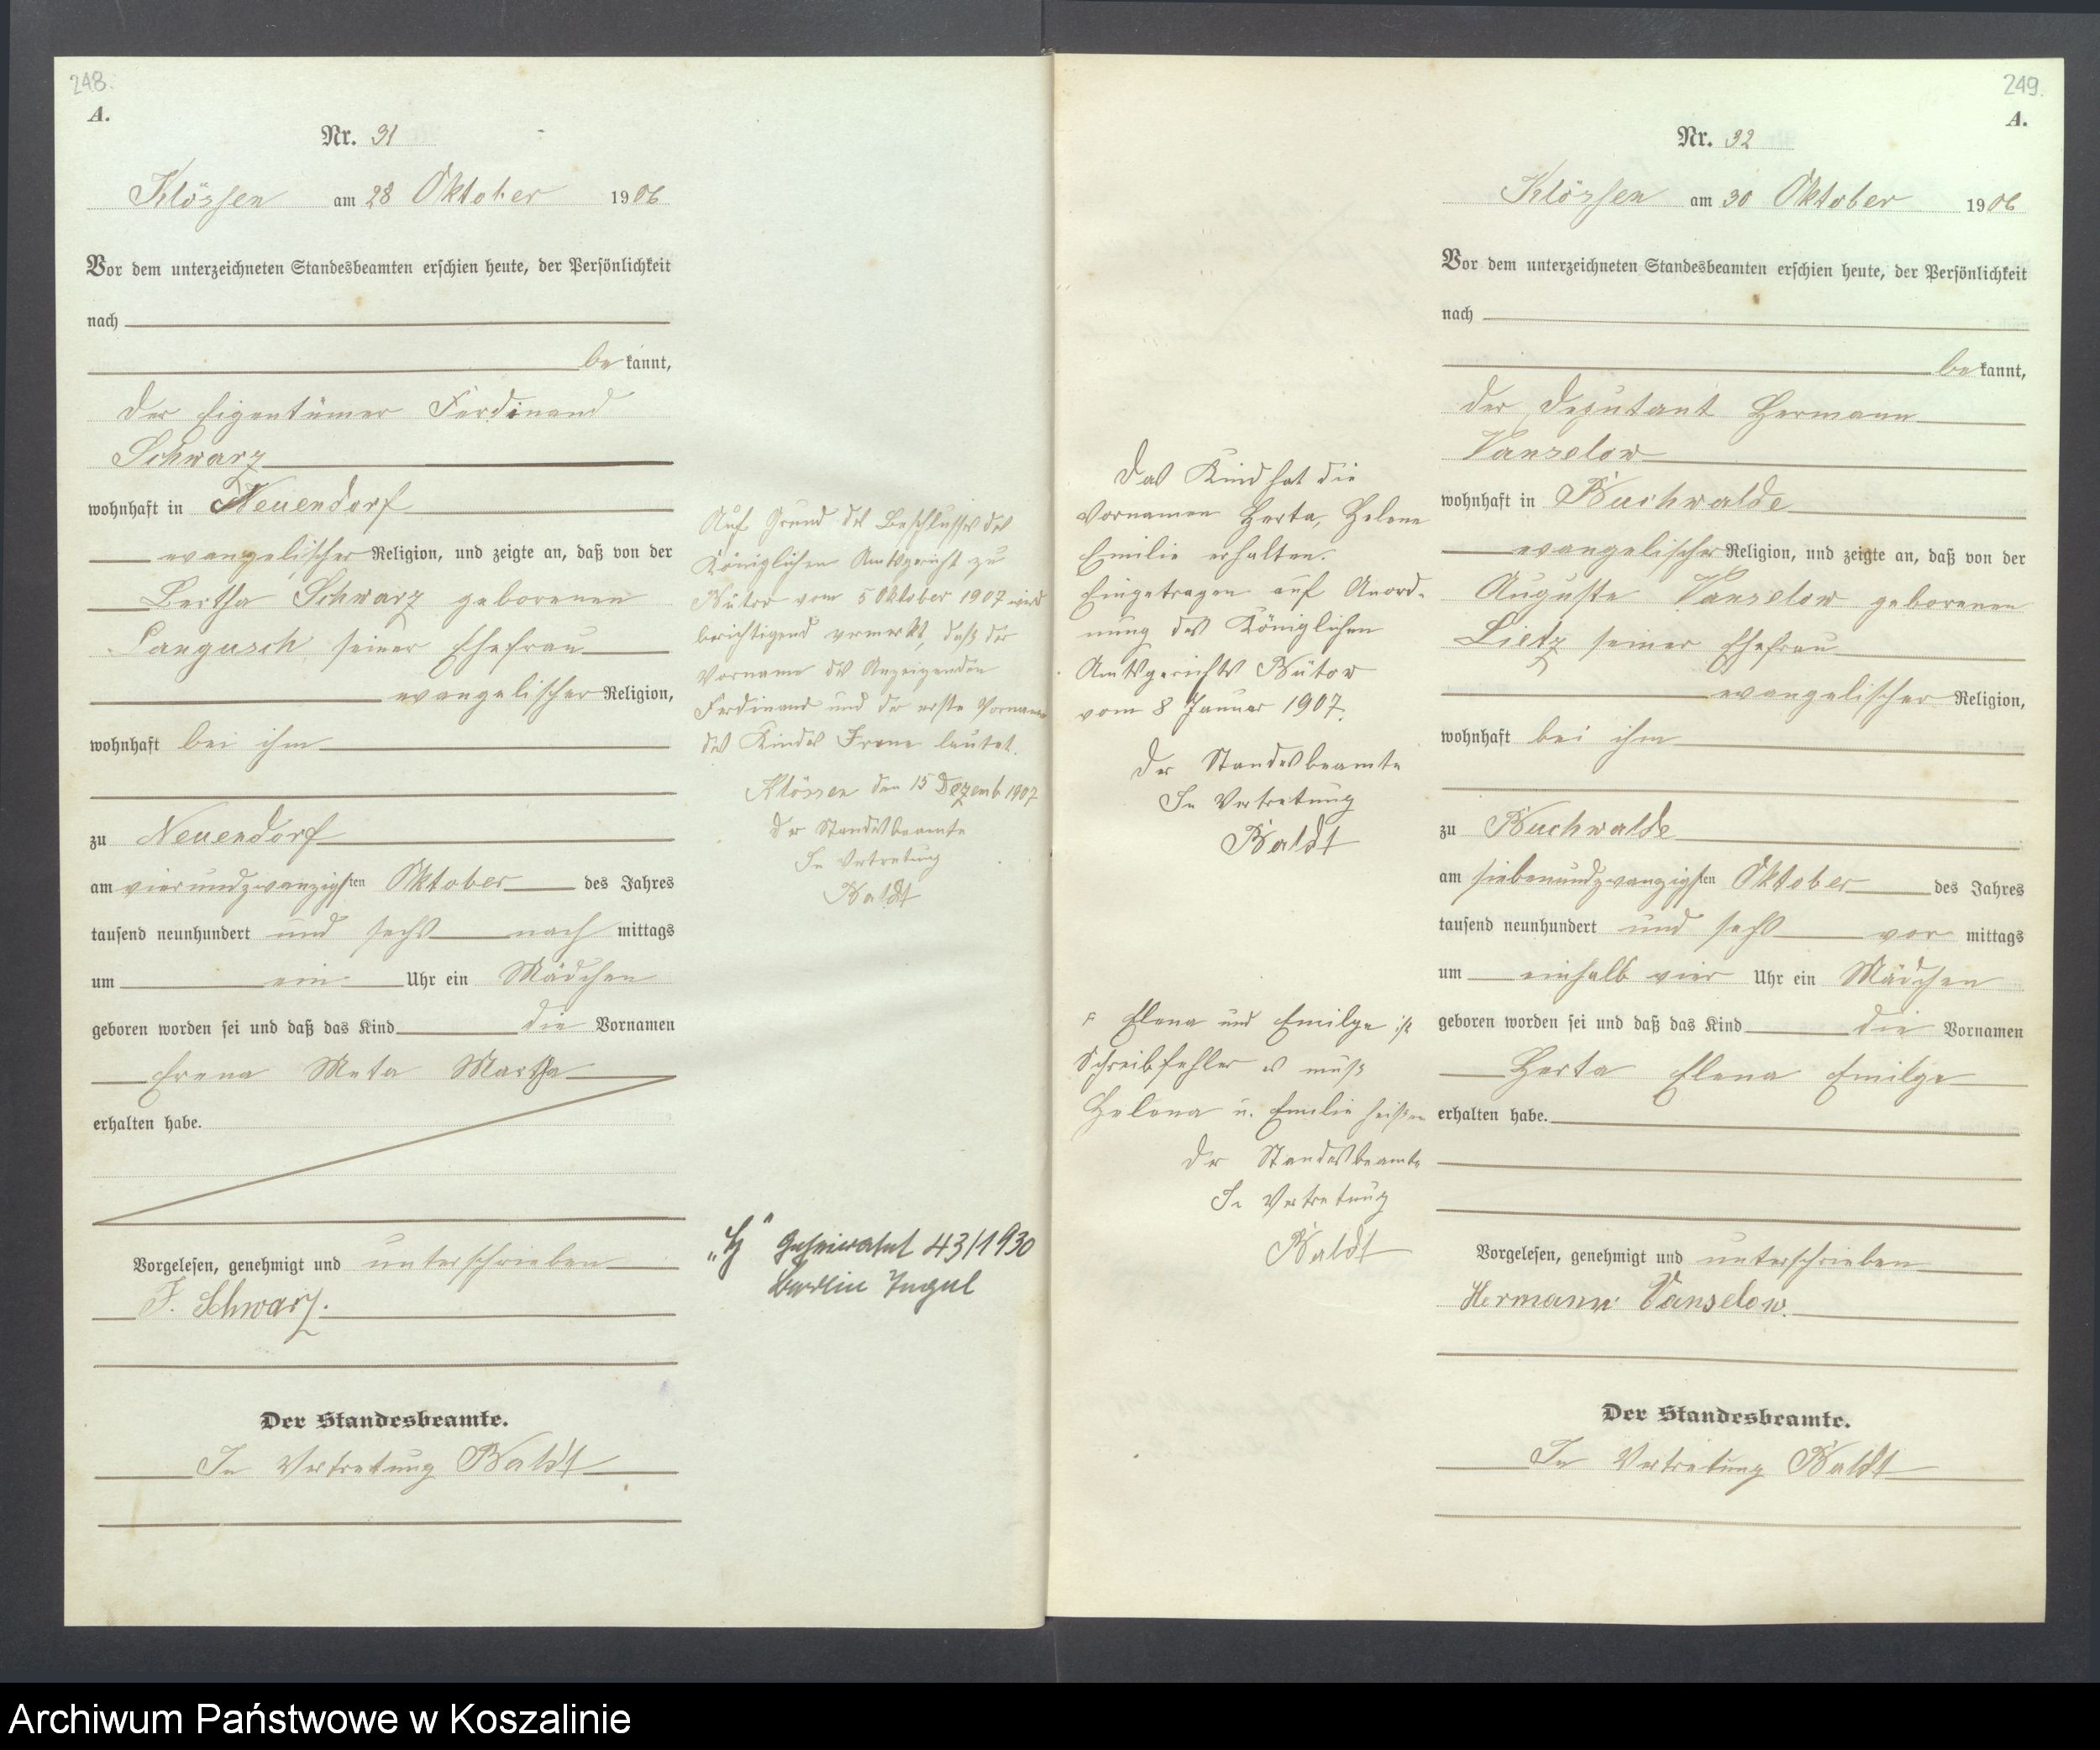 248.
A.
Nr. 31
Klössen am 28 Oktober 1906
Vor dem unterzeichneten Standesbeamten erschien heute, der Persönlichkeit
nach
be kannt,
der Eigentümer Ferdinand
Schwarz
wohnhaft in Neuendorf
evangelischer Religion, und zeigte an, daß von der
Bertha Schwarz geborenen
Langusch seiner Ehefrau
evangelischer Religion,
wohnhaft bei ihm
zu Neuendorf
am vierundzwanzigsten Oktober des Jahres
tausend neunhundert und sechs nach mittags
um ein Uhr ein Mädchen
geboren worden sei und daß das Kind die Vornamen
Erena Meta Martha
erhalten habe.
Vorgelesen, genehmigt und unterschrieben
F. Schwarz.
Der Standesbeamte.
In Vertretung Baldt
Auf Grund des Beschlusses des
Königlichen Amtsgericht zu
Bütow vom 5 Oktober 1907 wird
berichtigend vermerkt, daß der
Vorname des Anzeigenden
Ferdinand und der erste Vorname
des Kindes Irene lautet.
Klössen den 15 Dezemb 1907
Der Standesbeamte
In Vertretung
Baldt
43/1930
Berlin
249.
A.
Nr. 32
Klössen am 30 Oktober 1906
Vor dem unterzeichneten Standesbeamten erschien heute, der Persönlichkeit
nach
be kannt,
der Deputant Hermann
Vanselow
wohnhaft in Buchwalde
evangelischer Religion, und zeigte an, daß von der
Auguste Vanselow geborenen
Lietz seiner Ehefrau
evangelischer Religion,
wohnhaft bei ihm
zu Buchwalde
am siebenundzwanzigsten Oktober des Jahres
tausend neunhundert und sechs vor mittags
um einhalb vier Uhr ein Mädchen
geboren worden sei und daß das Kind die Vornamen
Herta Elena Emilge
erhalten habe.
Vorgelesen, genehmigt und unterschrieben
Hermann Vanselow.
Der Standesbeamte.
In Vertretung Baldt
Das Kind hat die
Vornamen Herta, Helene
Emilie erhalten.
Eingetragen auf Anord-
nung des Königlichen
Amtsgerichts Bütow
vom 8 Januar 1907.
Der Standesbeamte
In Vertretung
Baldt
Elena und Emilge ist
Schreibfehler es muß
Helena u. Emilie heißen
Der Standesbeamte
In Vertretung
Baldt
Archiwum Państwowe w Koszalinie